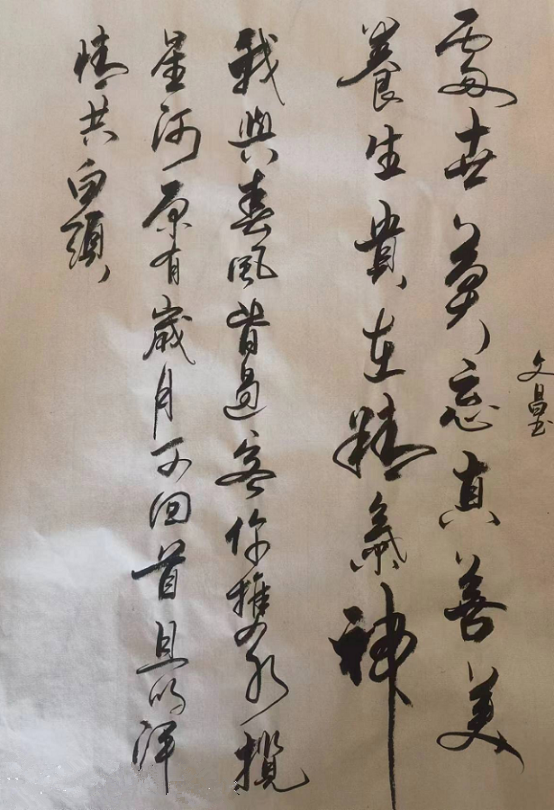 文昌
處世莫忘真善美
養生貴在精氣神
我與春風皆過客你攜秋水攬
星河原有歲月可回首且以深
情共白頭